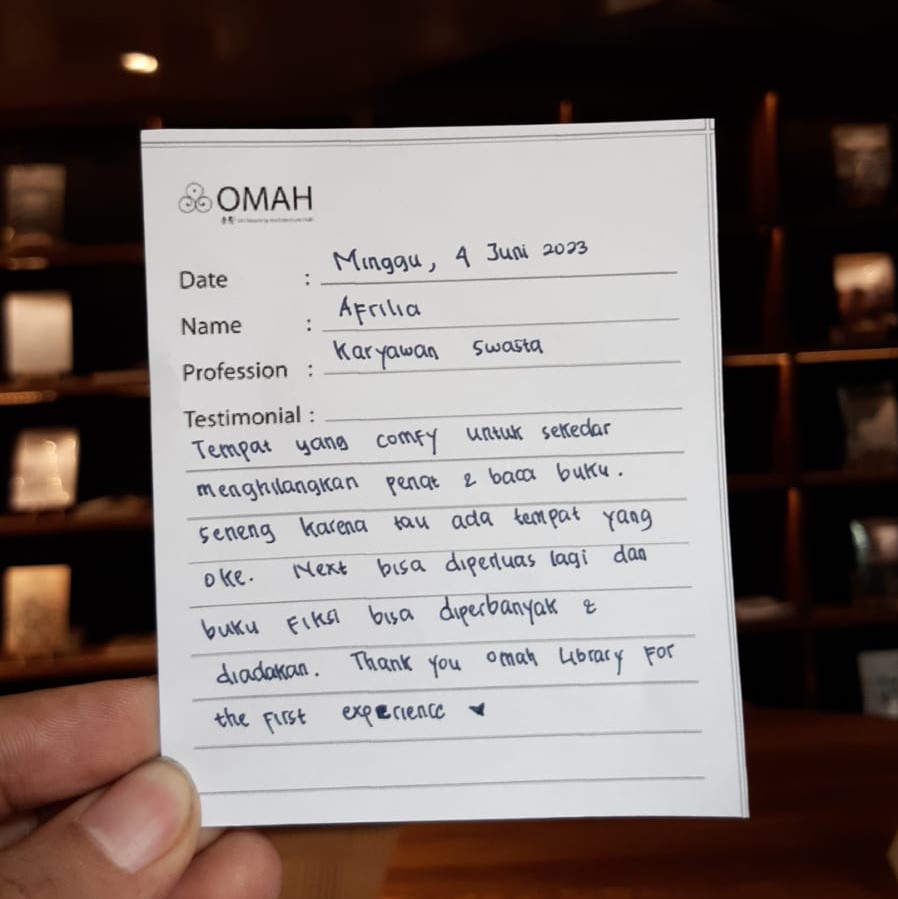 OMAH
Date : Minggu, 4 Juni 2023
Name : Afrilia
Profession : Karyawan Swasta
Testimonial :
Tempat yang comfy untuk sekedar
menghilangkan penat & baca buku.
seneng karena tau ada tempat yang
oke. Next bisa diperluas lagi dan
buku Fiksi bisa diperbanyak &
diadakan. Thank you Omah Library For
the First experience ♥